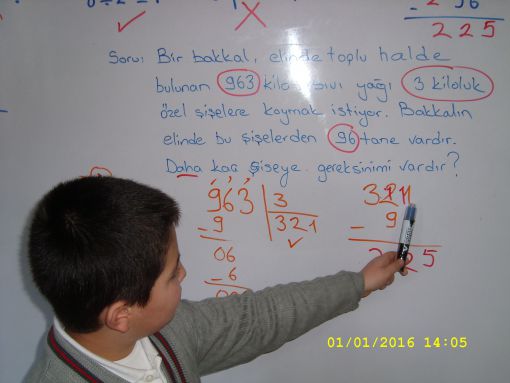 225
Soru: Bir bakkal, elinde toplu halde
bulunan 963 kilo sıvı yağı 3 kiloluk
özel şişelere koymak istiyor. Bakkalın
elinde bu şişelerden 96 tane vardır.
Daha kaç şişeye gereksinimi vardır?
963 3
- 9 321
06
- 6
- 9
225
01/01/2016 14:05